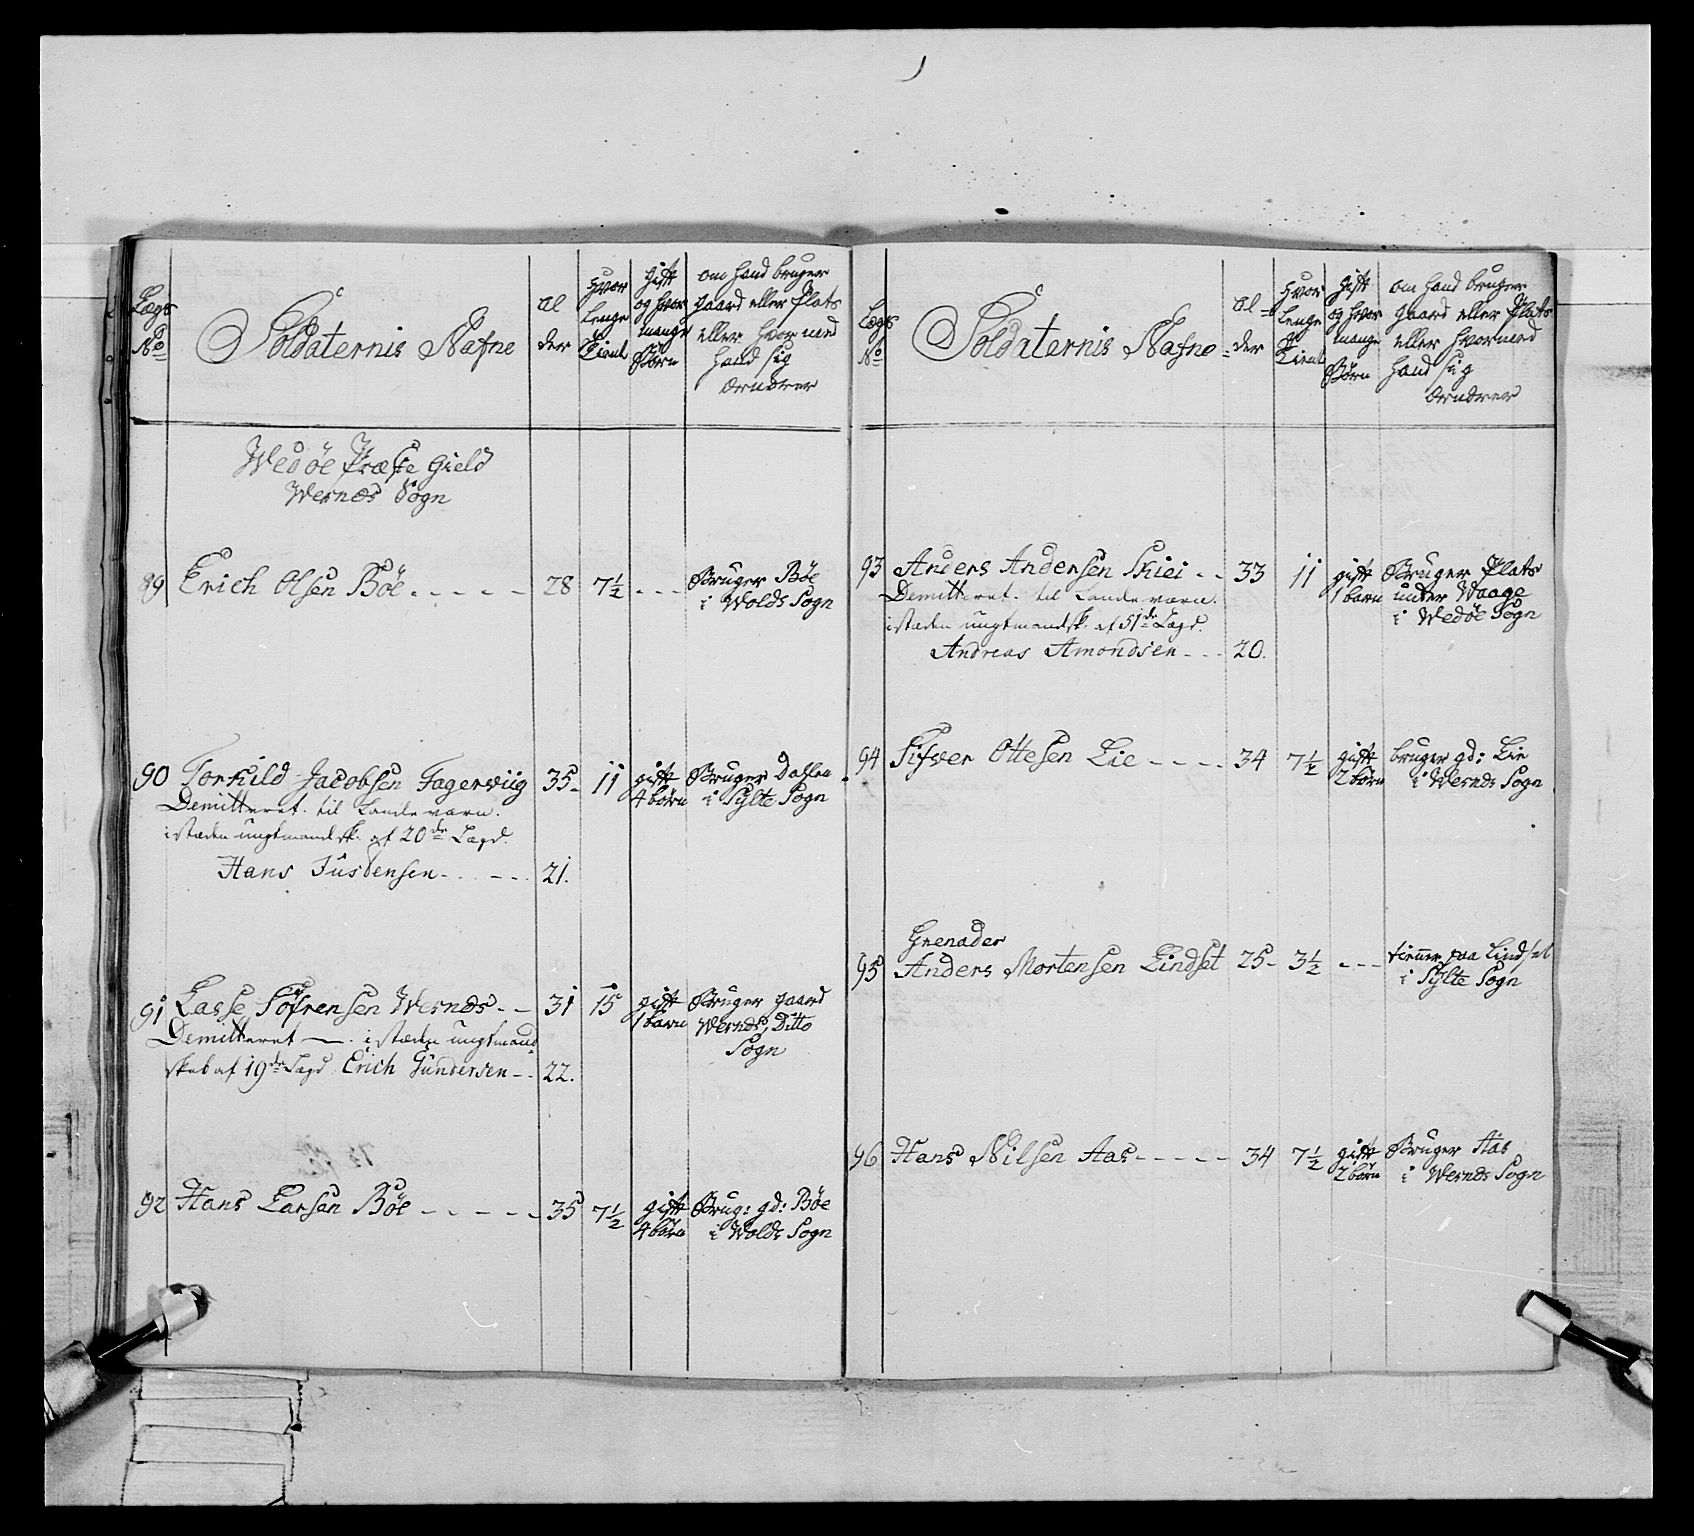 Lægs
No
Soldaternis Nafne
Al
der
Hvor
lenge
Tient
Gift
og hvor
mange
Børn
om hand bruger
gaard eller Plats
eller hvor med
hand sig
ernærer
Wedøe Præste Gield
Wernes Sogn
89 Erich Olsen Bøe - - - - - 28 7 1/2 - - - Bruger Bøe
i Wolds Sogn
90 Torkild Jacobsen Fagerviig 35 - 11 gift Bruger Dahlen
4 børn i Sylte Sogn
Demitteret til Landeværn.
i stæden ungtmandsk. af 20de Lægd.
Hans Justensen - - - - 21.
91 Lasse Søfrensen Wernes - - 31 15 gift Bruger gaard
1 barn Wernes, Ditto
Sogn
Demitteret —. i stæden ungtmand
skab af 19de Lægd Erich Gundersen - - 22.
92 Hans Larsen Bøe - - - - - 35 7 1/2 gift Brug: gd: Bøe
4 børn i Wolds Sogn
Lægs
No
Soldaternis Nafne
Al
der
Hvor
lenge
Tient
Gift
og hvor
mange
Børn
om hand bruger
gaard eller Plats
eller hvormed
hand sig
ernærer
93 Anders Andersen Skiei - - 33 11 gift Bruger Plats
1 barn under Waage
i Wedøe Sogn
Demitteret. til Landeværn.
i stæden ungtmandsk. af 51de Lægd.
Andreas Amondsen - - - 20.
94 Sifver Ottesen Lie - - - - 34 7 1/2 gift bruger gd: Lie
2 børn i Wernes Sogn
Grenader
95 Anders Mortensen Lindset 25 - 3 1/2 - - - tienner paa Lindset
i Sylte Sogn
96 Hans Nilsen Aas - - - - - 34 7 1/2 gift Bruger Aas
2 børn i Wernes Sogn